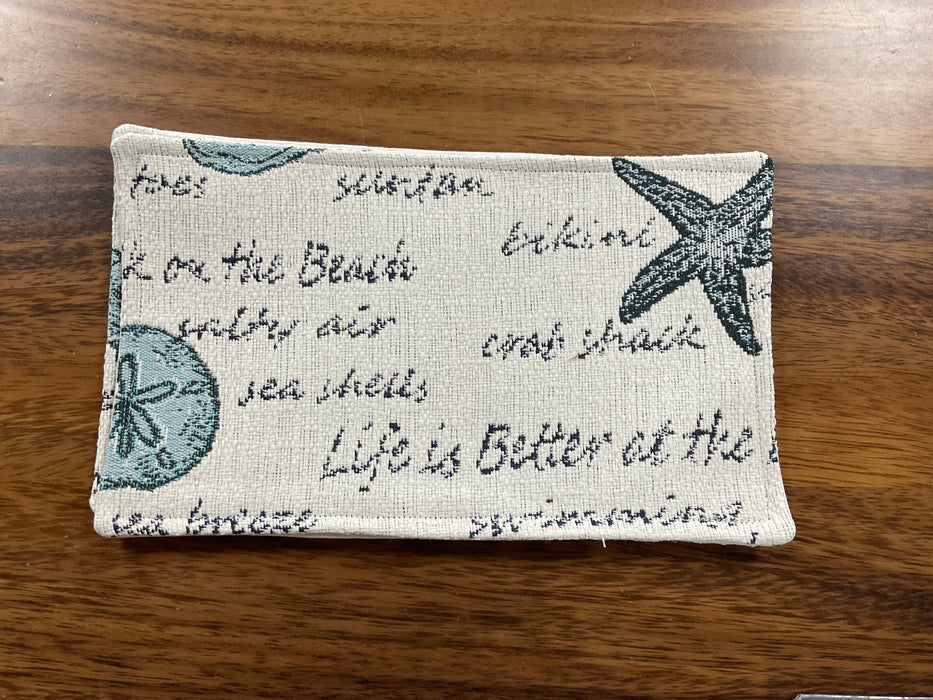 toes suntan
bikini
on the Beach
salty air
crab shack
sea shells
Life is Better at the
sea breeze swimming